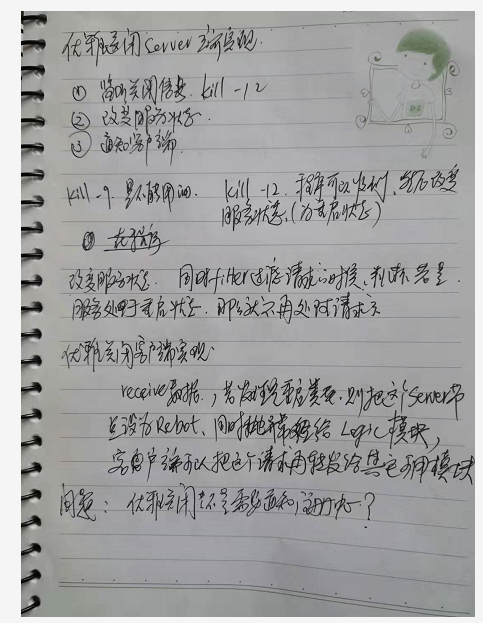 优雅关闭Server端实现.
① 监听关闭信号. kill -12
② 改变服务状态.
③ 通知客户端.
kill -9. 是不能用的. kill -12. 程序可以收到, 然后改变
服务状态. (为重启状态)
改变服务状态. 同时filter过滤请求的时候, 判断若是
服务处于重启状态. 那么就不再处理请求.
优雅关闭客户端实现.
receive数据, 若发现是重启类型. 则把这个Server节
点设为Rebot、同时抛异常给 Logic 模块,
客户端可以把这个请求再转发给其它可用模块
问题: 优雅关闭是不是需要通知注册中心?